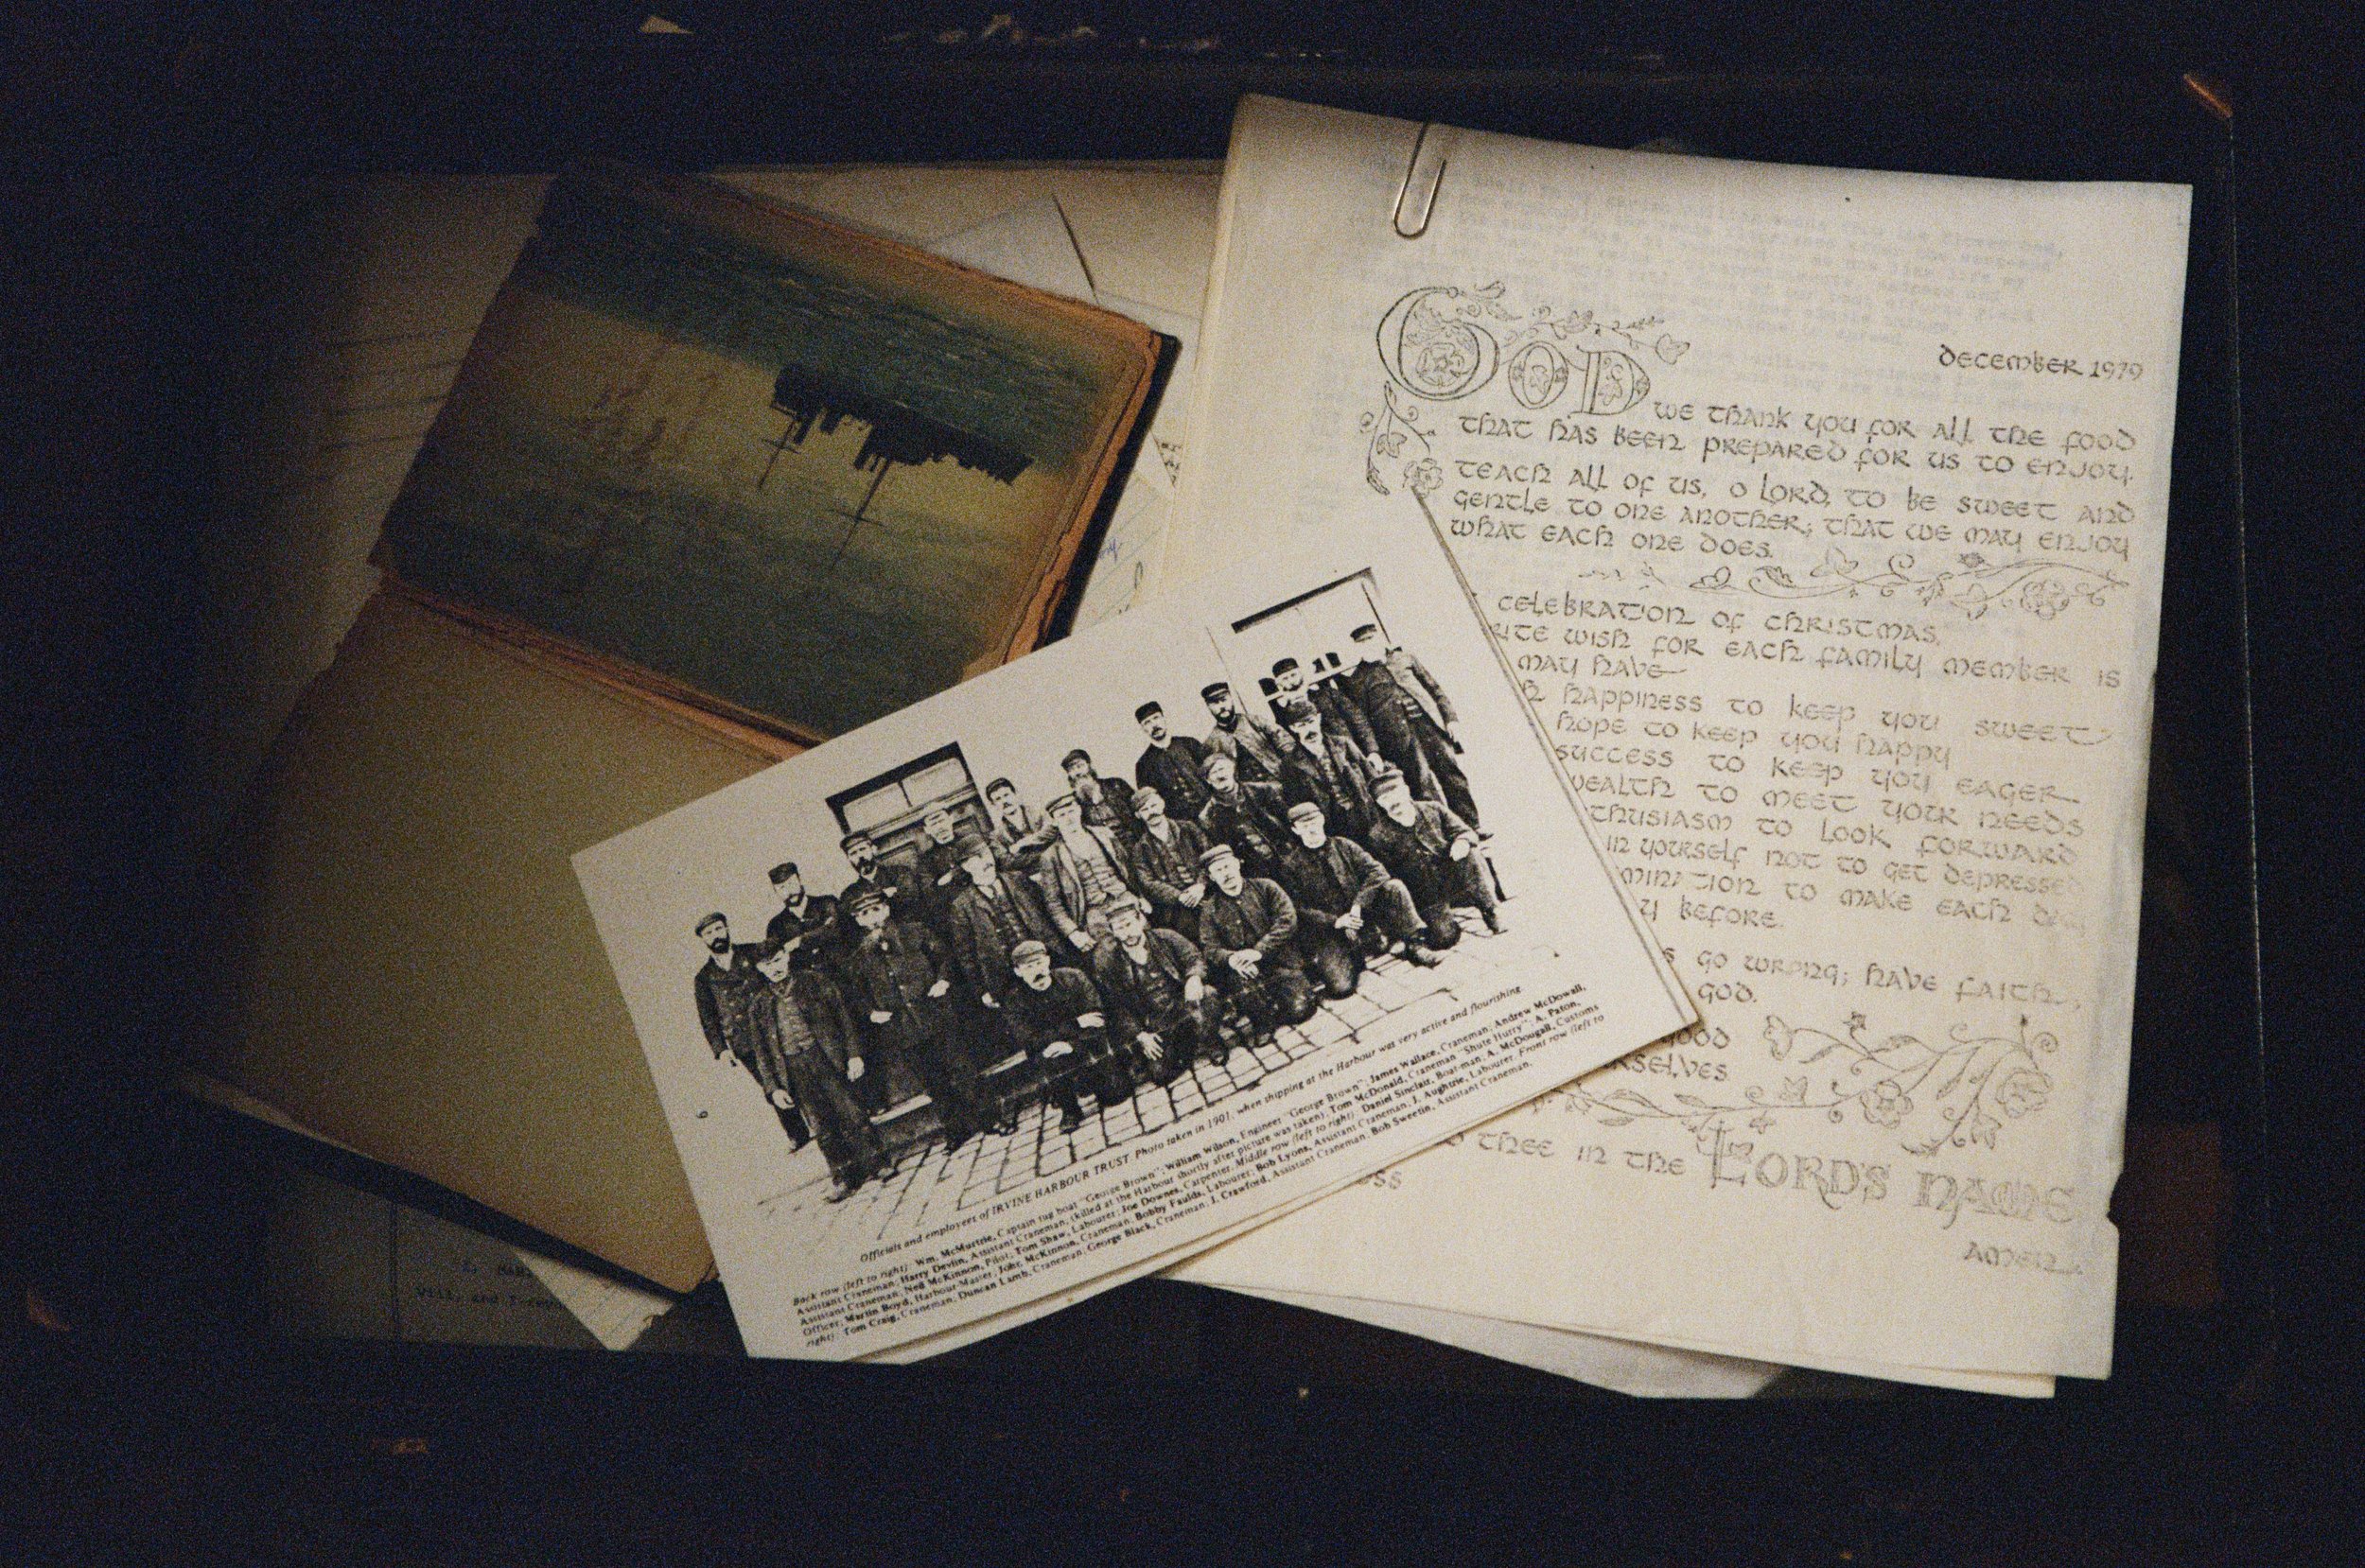 DECEMBER 1979
GOD WE THANK YOU FOR ALL THE FOOD
THAT HAS BEEN PREPARED FOR US TO ENJOY.
TEACH ALL OF US, O LORD, TO BE SWEET AND
GENTLE TO ONE ANOTHER; THAT WE MAY ENJOY
WHAT EACH ONE DOES.
CELEBRATION OF CHRISTMAS,
WISH FOR EACH FAMILY MEMBER IS
MAY HAVE
HAPPINESS TO KEEP YOU SWEET
HOPE TO KEEP YOU HAPPY
SUCCESS TO KEEP YOU EAGER
WEALTH TO MEET YOUR NEEDS
THUSIASM TO LOOK FORWARD
IN YOURSELF NOT TO GET DEPRESSED
MINATION TO MAKE EACH
BEFORE.
GO WRONG; HAVE FAITH,
GOD.
GOOD
RSELVES
THEE IN THE LORD'S NAME
AMEN.
Officials and employees of IRVINE HARBOUR TRUST. Photo taken in 1901, when shipping at the Harbour was very active and flourishing
Back row (left to right): Wm. McMurtrie, Captain tug boat "George Brown"; William Wilson, Engineer "George Brown"; James Wallace, Craneman; Andrew McDowall,
Assistant Craneman; Harry Devlin, Assistant Craneman, (killed at the Harbour shortly after picture was taken); Tom McDonald, Craneman "Shute Hurry"; A. Paton,
Assistant Craneman; Neil McKinnon, Pilot; Tom Shaw, Labourer; Joe Downes, Carpenter. Middle row (left to right): Daniel Sinclair, Boat-man; A. McDougall, Customs
Officer; Martin Boyd, Harbour-Master; John McKinnon, Craneman; Bobby Faulds, Labourer; Bob Lyons, Assistant Craneman; J. Aughtrie, Labourer. Front row (left to
right): Tom Craig, Craneman; Duncan Lamb, Craneman; George Black, Craneman; J. Crawford, Assistant Craneman; Bob Sweetin, Assistant Craneman.